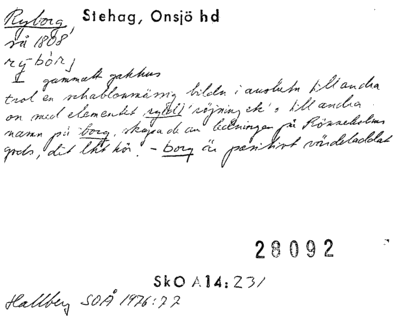 Ryborg, Stehag, Onsjö hd
så 1808
ry`bòrj
I gammalt gathus
trol en schablonmässig bildn i anslutn till andra
on med elementet ryd(-) 'röjning ek' o till andra
namn på borg, skapade av ledningen på Rönneholms
gods, dit Lht hör. - borg är positivt värdeladdat
28092
SkO A14: 231
Hallberg SOÅ 1976:77